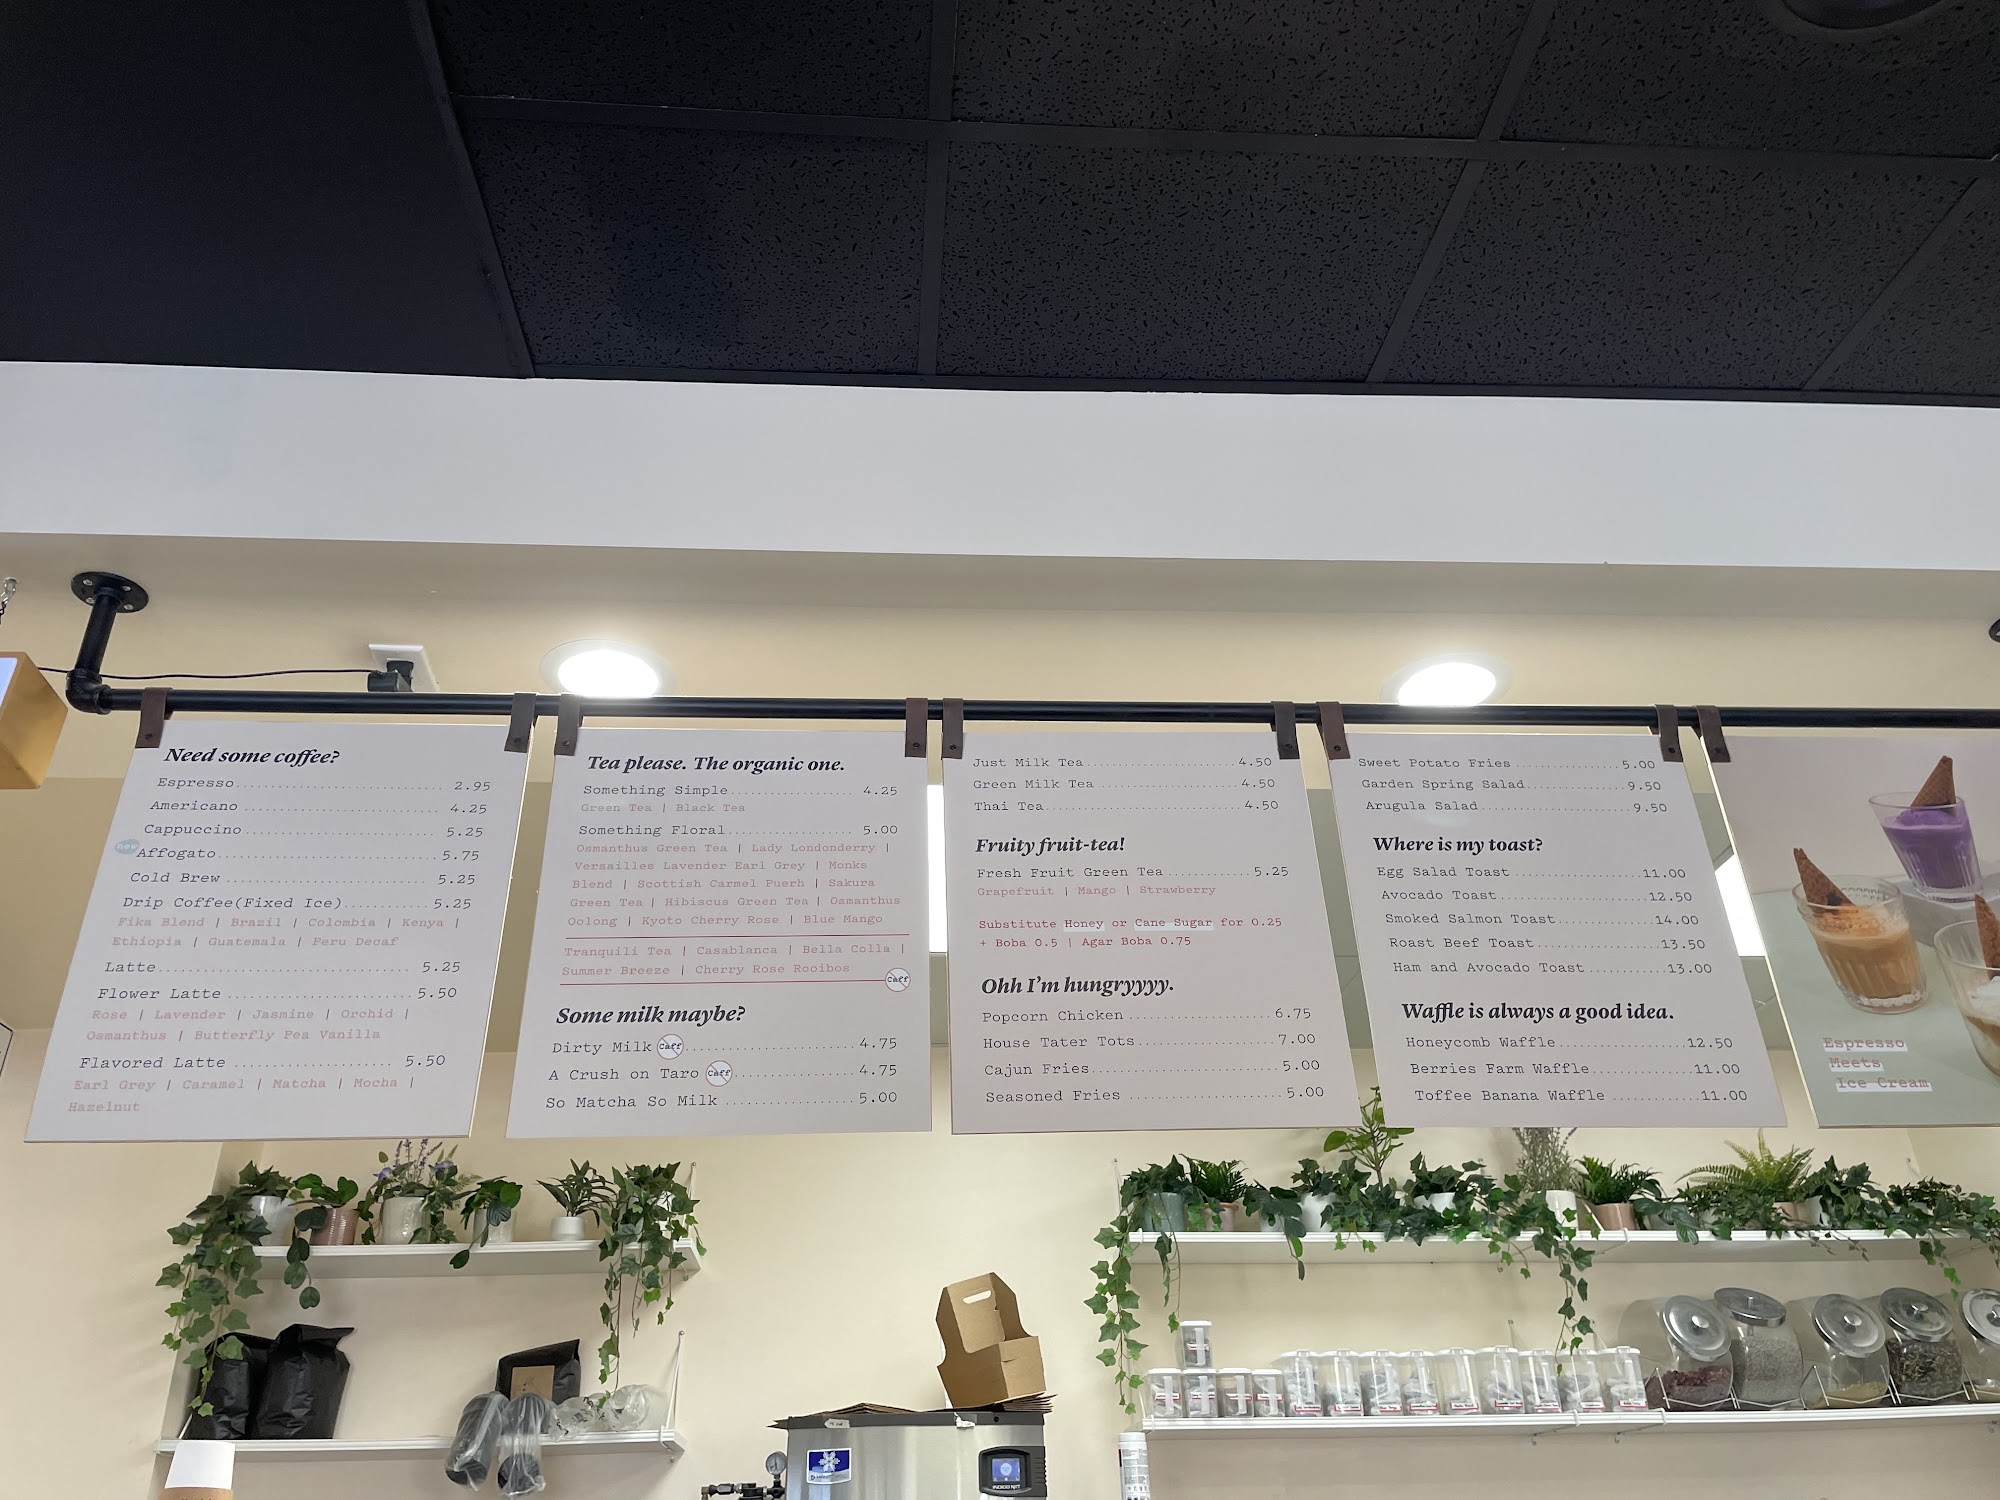 Need some coffee?
Espresso 2.95
Americano 4.25
Cappuccino 5.25
new
Affogato 5.75
Cold Brew 5.25
Drip Coffee(Fixed Ice) 5.25
Fika Blend | Brazil | Colombia | Kenya |
Ethiopia | Guatemala | Peru Decaf
Latte 5.25
Flower Latte 5.50
Rose | Lavender | Jasmine | Orchid |
Osmanthus | Butterfly Pea Vanilla
Flavored Latte 5.50
Earl Grey | Caramel | Matcha | Mocha |
Hazelnut
Tea please. The organic one.
Something Simple 4.25
Green Tea | Black Tea
Something Floral 5.00
Osmanthus Green Tea | Lady Londonderry |
Versailles Lavender Earl Grey | Monks
Blend | Scottish Carmel Puerh | Sakura
Green Tea | Hibiscus Green Tea | Osmanthus
Oolong | Kyoto Cherry Rose | Blue Mango
Tranquili Tea | Casablanca | Bella Colla |
Summer Breeze | Cherry Rose Rooibos
Caff
Some milk maybe?
Dirty Milk Caff 4.75
A Crush on Taro Caff 4.75
So Matcha So Milk 5.00
Just Milk Tea 4.50
Green Milk Tea 4.50
Thai Tea 4.50
Fruity fruit-tea!
Fresh Fruit Green Tea 5.25
Grapefruit | Mango | Strawberry
Substitute Honey or Cane Sugar for 0.25
+ Boba 0.5 | Agar Boba 0.75
Ohh I'm hungryyyy.
Popcorn Chicken 6.75
House Tater Tots 7.00
Cajun Fries 5.00
Seasoned Fries 5.00
Sweet Potato Fries 5.00
Garden Spring Salad 9.50
Arugula Salad 9.50
Where is my toast?
Egg Salad Toast 11.00
Avocado Toast 12.50
Smoked Salmon Toast 14.00
Roast Beef Toast 13.50
Ham and Avocado Toast 13.00
Waffle is always a good idea.
Honeycomb Waffle 12.50
Berries Farm Waffle 11.00
Toffee Banana Waffle 11.00
Espresso
Meets
Ice Cream